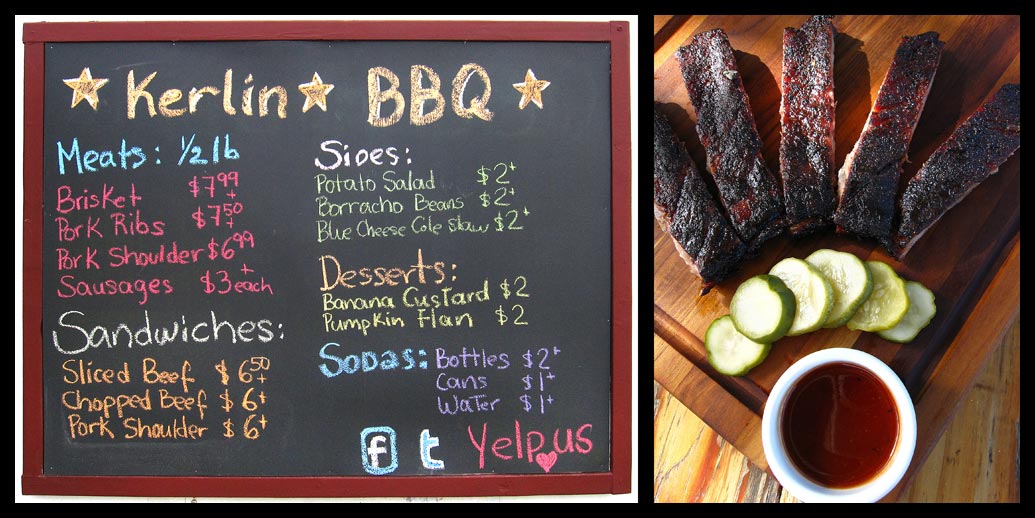 Kerlin BBQ
Meats: 1/2 lb
Brisket $7.99+
Pork Ribs $7.50+
Pork Shoulder $6.99+
Sausages $3 each
Sandwiches:
Sliced Beef $6.50+
Chopped Beef $6+
Pork Shoulder $6+
Sides:
Potato Salad $2+
Borracho Beans $2+
Blue Cheese Cole Slaw $2+
Desserts:
Banana Custard $2
Pumpkin Flan $2
Sodas: Bottles $2+
Cans $1+
Water $1+
f t Yelp us